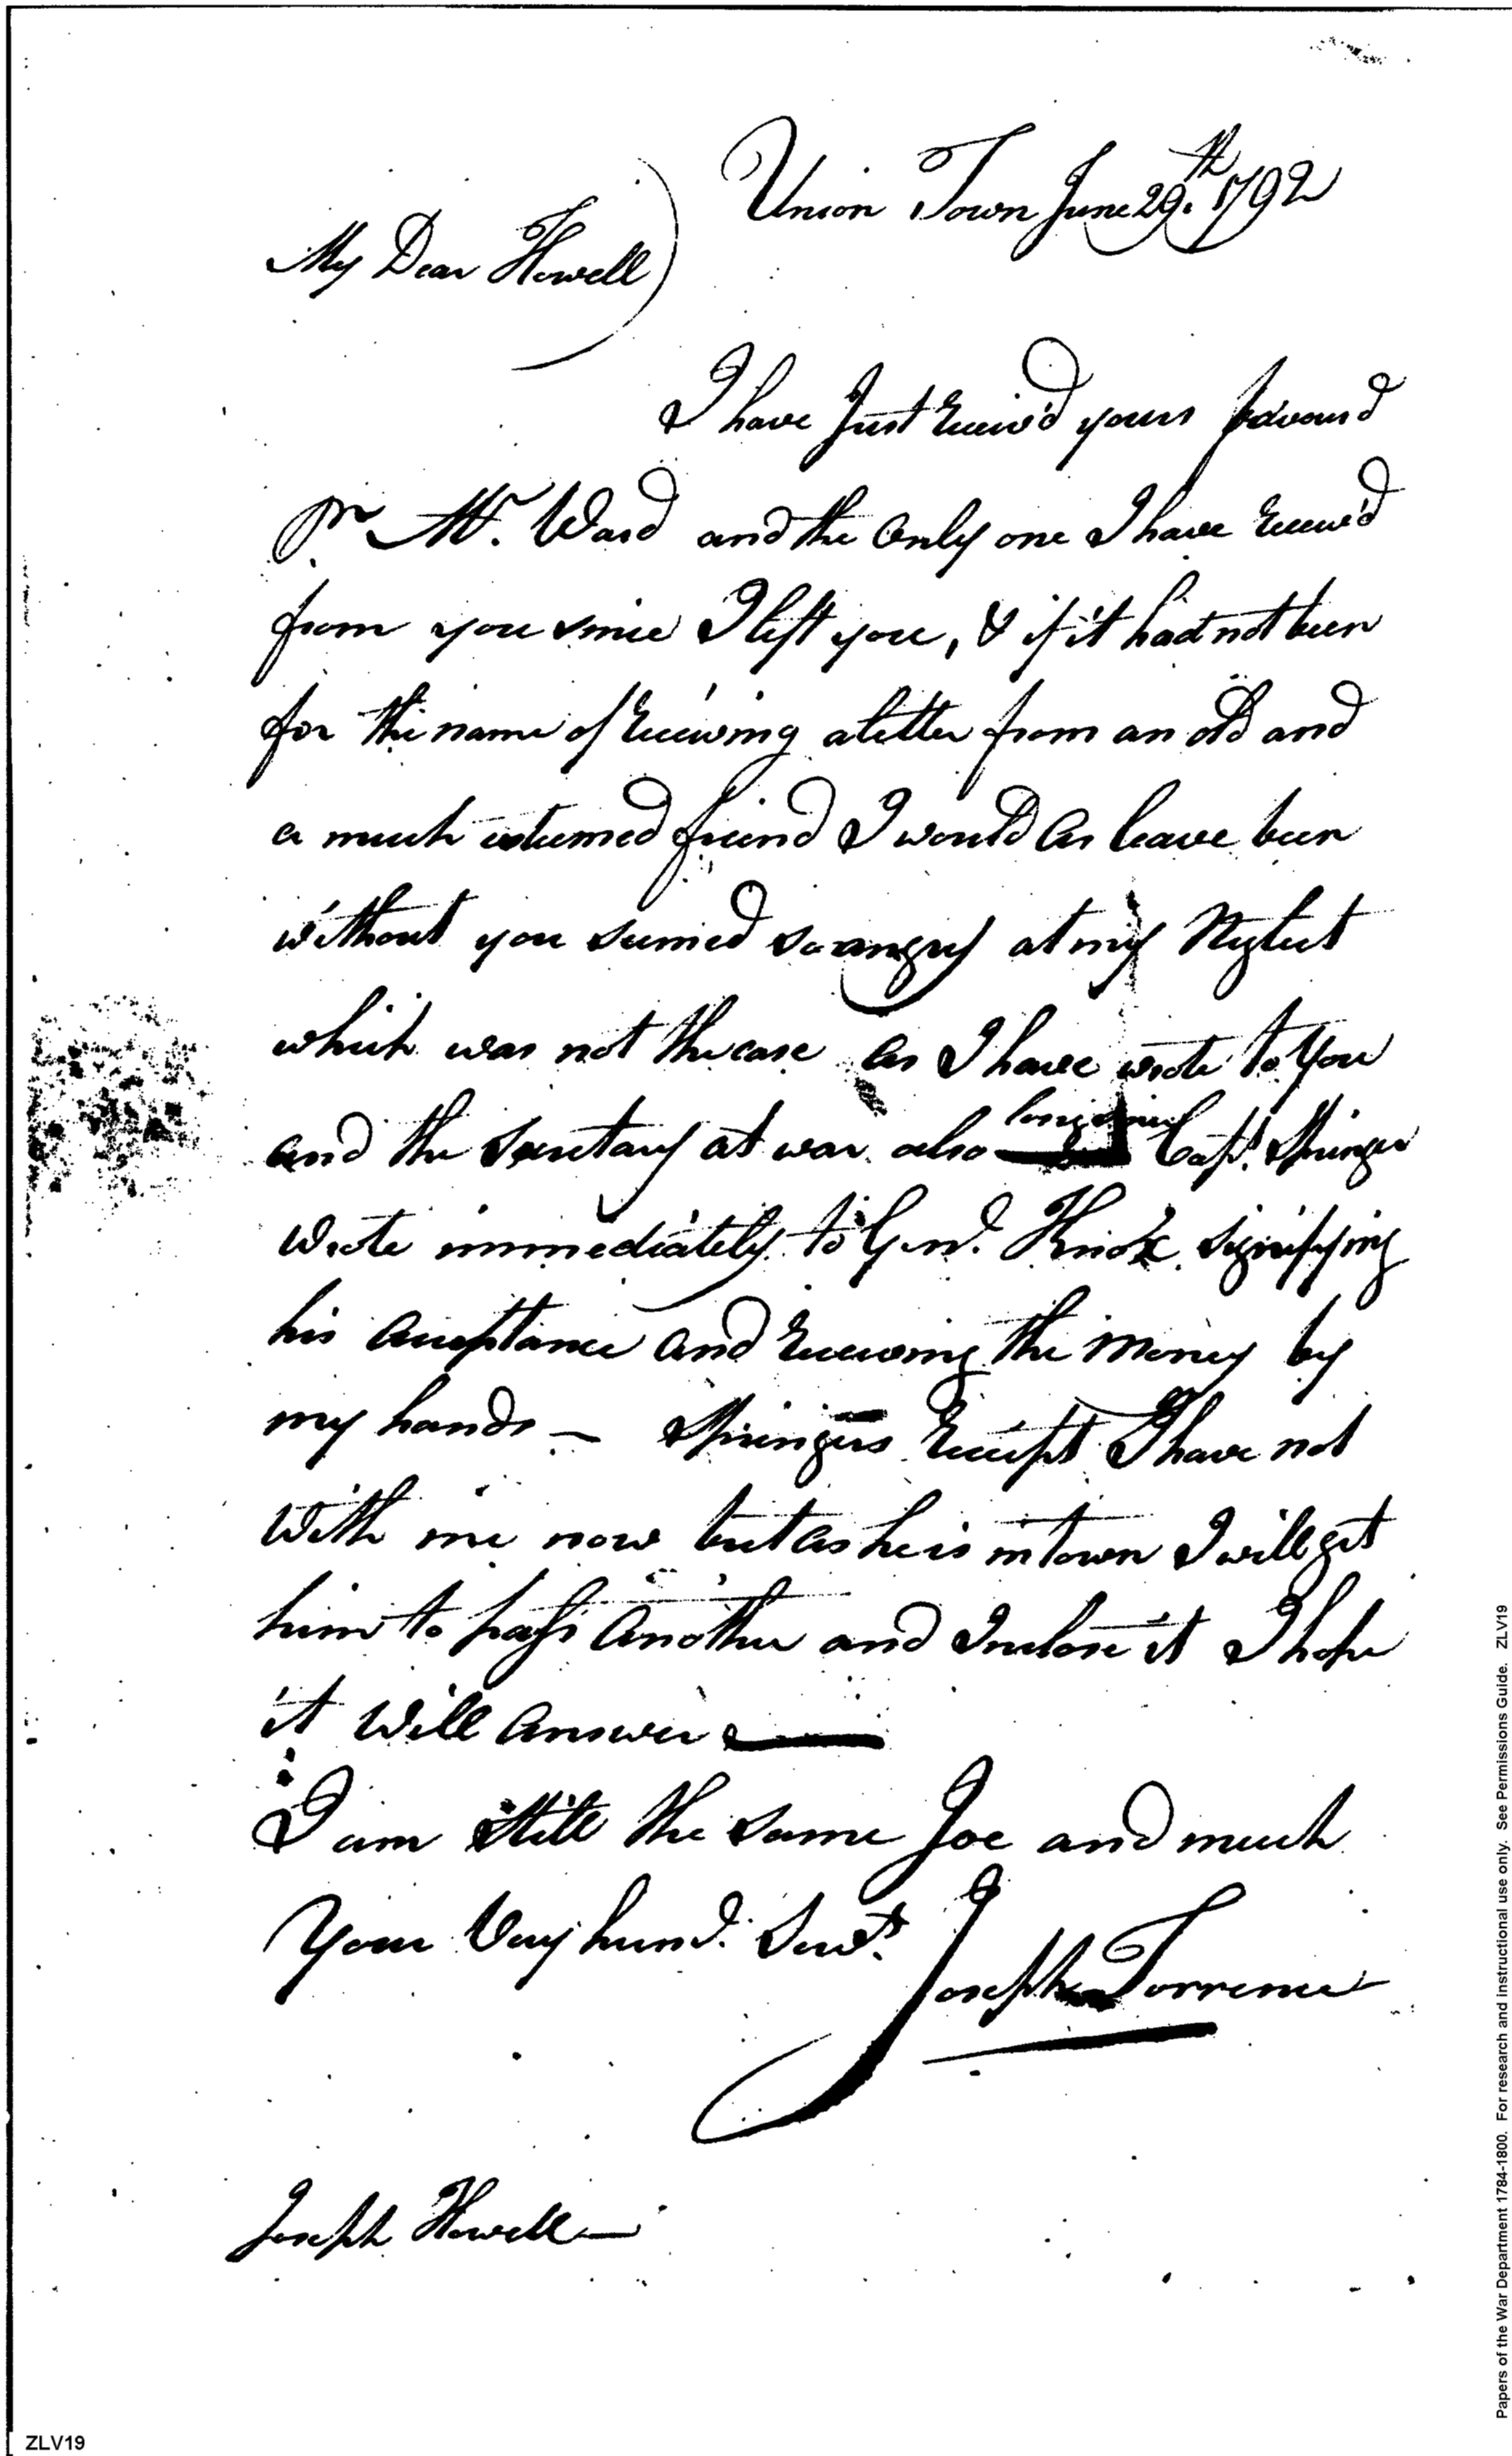 Union Town June 29th. 1792
My Dear Howell
I have Just Receiv'd yours forward
pr Mr. Ward and the only one I have Receiv'd
from you since I left you, & if it had not been
for the name of Receiving a letter from an old and
a much esteemed friend I would as leave been
without you seemed so angry at my Neglect
which was not the case as I have wrote to You
and the Secretary at war also long since Capt. Springer
Wrote immediately to Genl. Knox signifying
his acceptance and Receiving the Money by
my hands — Springers Receipt I have not
With me now but as he is in town I will get
him to pass another and Inclose it I hope
it Will answer —
I am Still the same Joe and much
Your Very humd. Servt.
Joseph Torrence
Joseph Howell —
ZLV19
Papers of the War Department 1784-1800. For research and instructional use only. See Permissions Guide. ZLV19